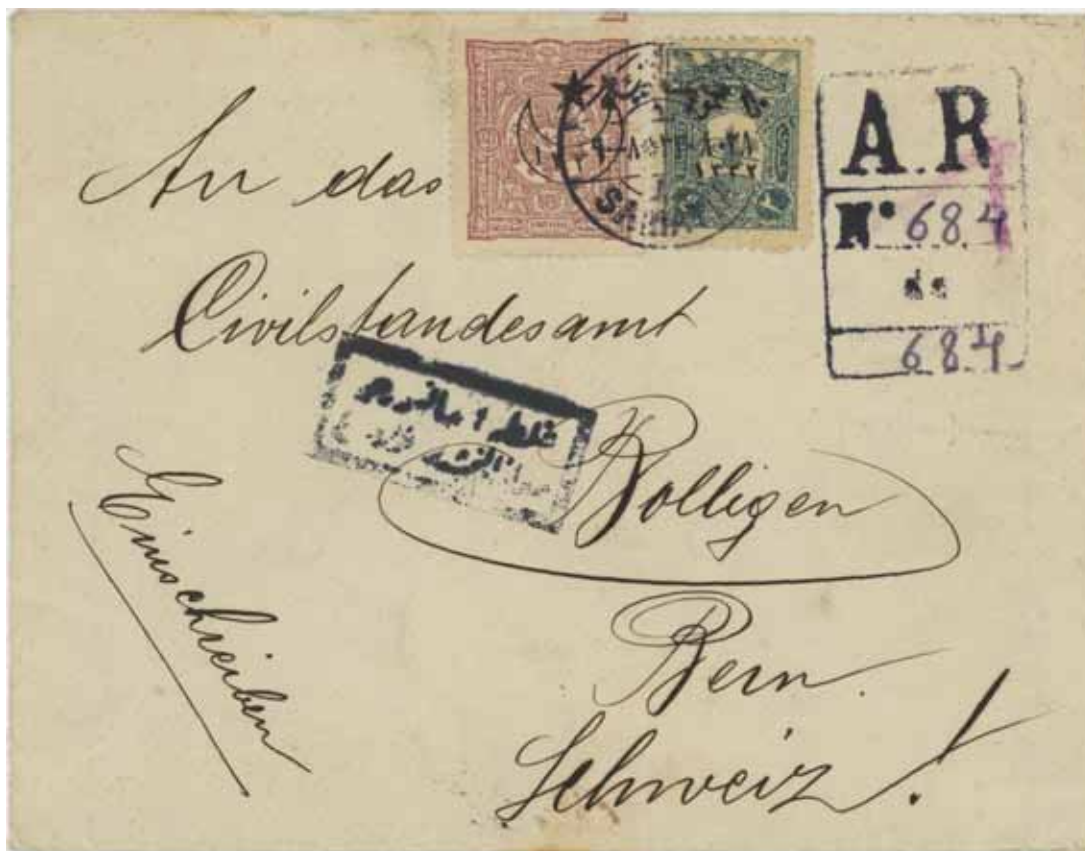 An das
Civilstandesamt
Bolligen
Bern.
Schweiz!
Einschreiben
A.R
N° 684
de
684
١٣٣١
١٣٣٢